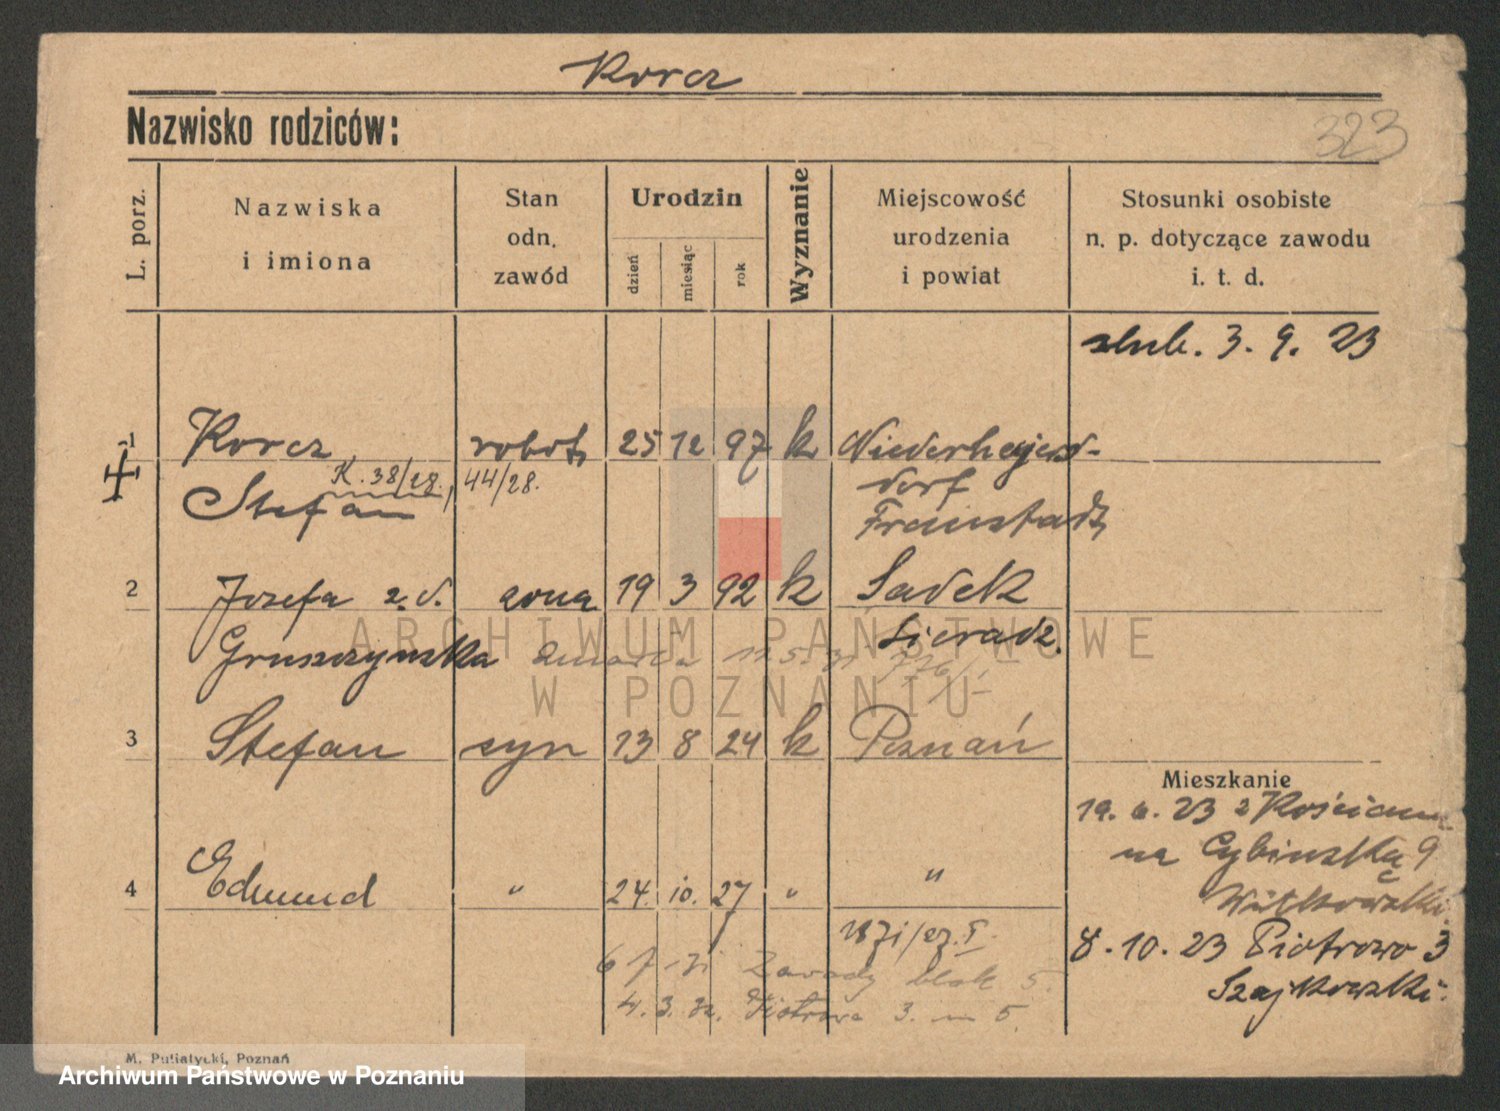 Korcz
Nazwisko rodziców:
323
L. porz.
Nazwiska
i imiona
Stan
odn.
zawód
Urodzin
dzień
miesiąc
rok
Wyznanie
Miejscowość
urodzenia
i powiat
Stosunki osobiste
n. p. dotyczące zawodu
i. t. d.
ślub. 3. 9. 23
1 Korcz robot. 25 12 97 k
K. 38/28, 44/28.
Stefan
dorf
Fraustadt
2 Józefa z. d. żona 19 3 92 k Sadek
Gruszczyńska Sieradz
zmarła
3 Stefan syn 13 8 24 k Poznań
Mieszkanie
19. 6. 23 z
na Cybińską 9
4 Edmund " 24. 10. 27 " "
8. 10. 23 Piotrowo 3
Szajkowski.
Zawady blok 5.
4. 3. 32. Piotrowo 3. m 5.
M. Putiatycki, Poznań
ARCHIWUM PAŃSTWOWE
W POZNANIU
Archiwum Państwowe w Poznaniu